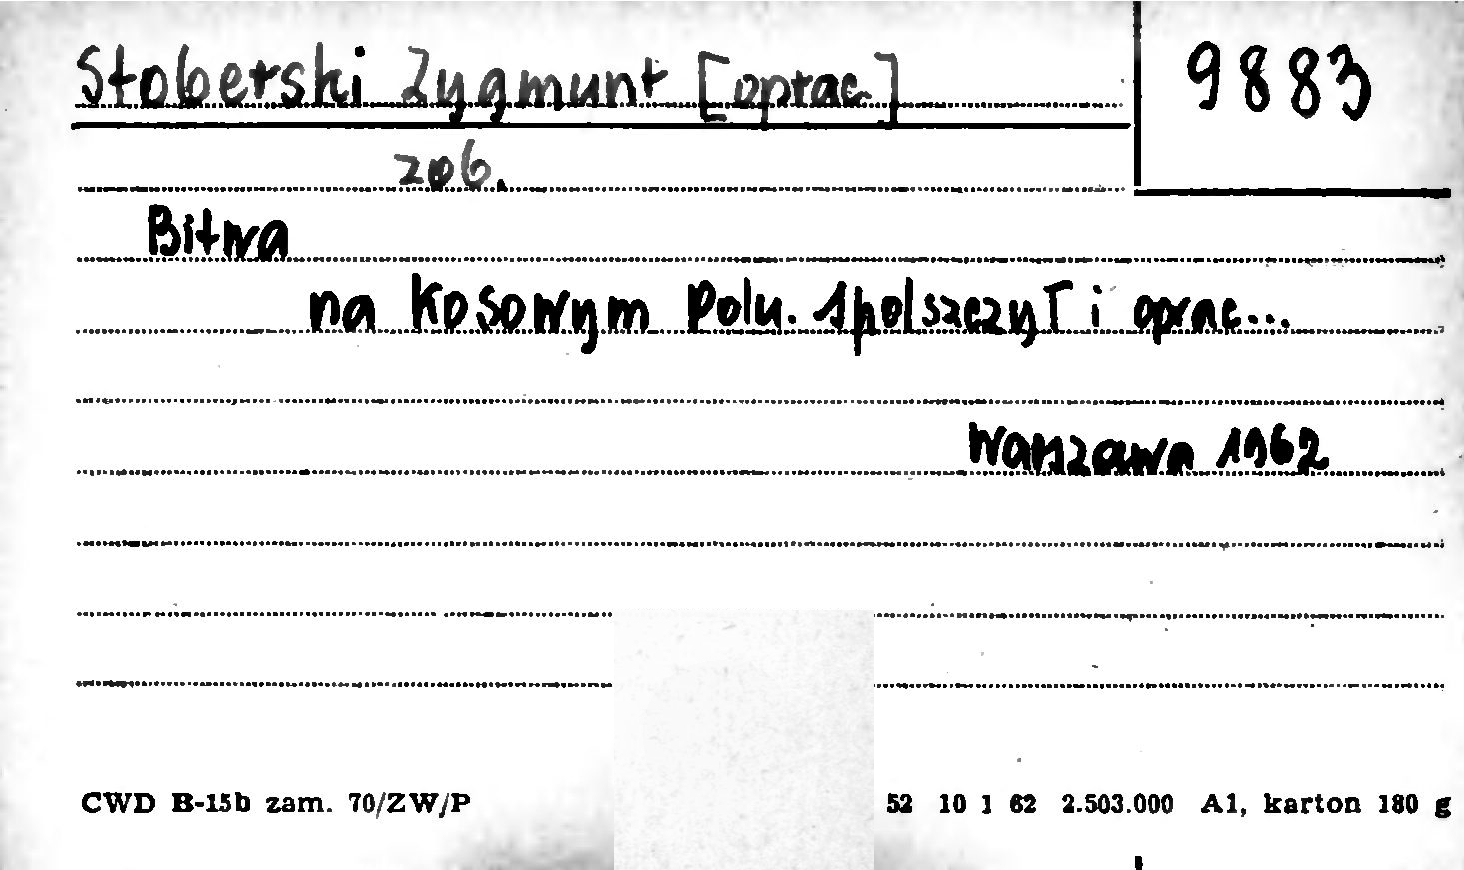 Stoberski Zygmunt [oprac]
9883
zob.
Bitwa
na Kosowym Polu. Spolszczył i oprac...
Warszawa 1962
CWD B-15b zam. 70/ZW/P 52 10 1 62 2.503.000 A1, karton 180 g